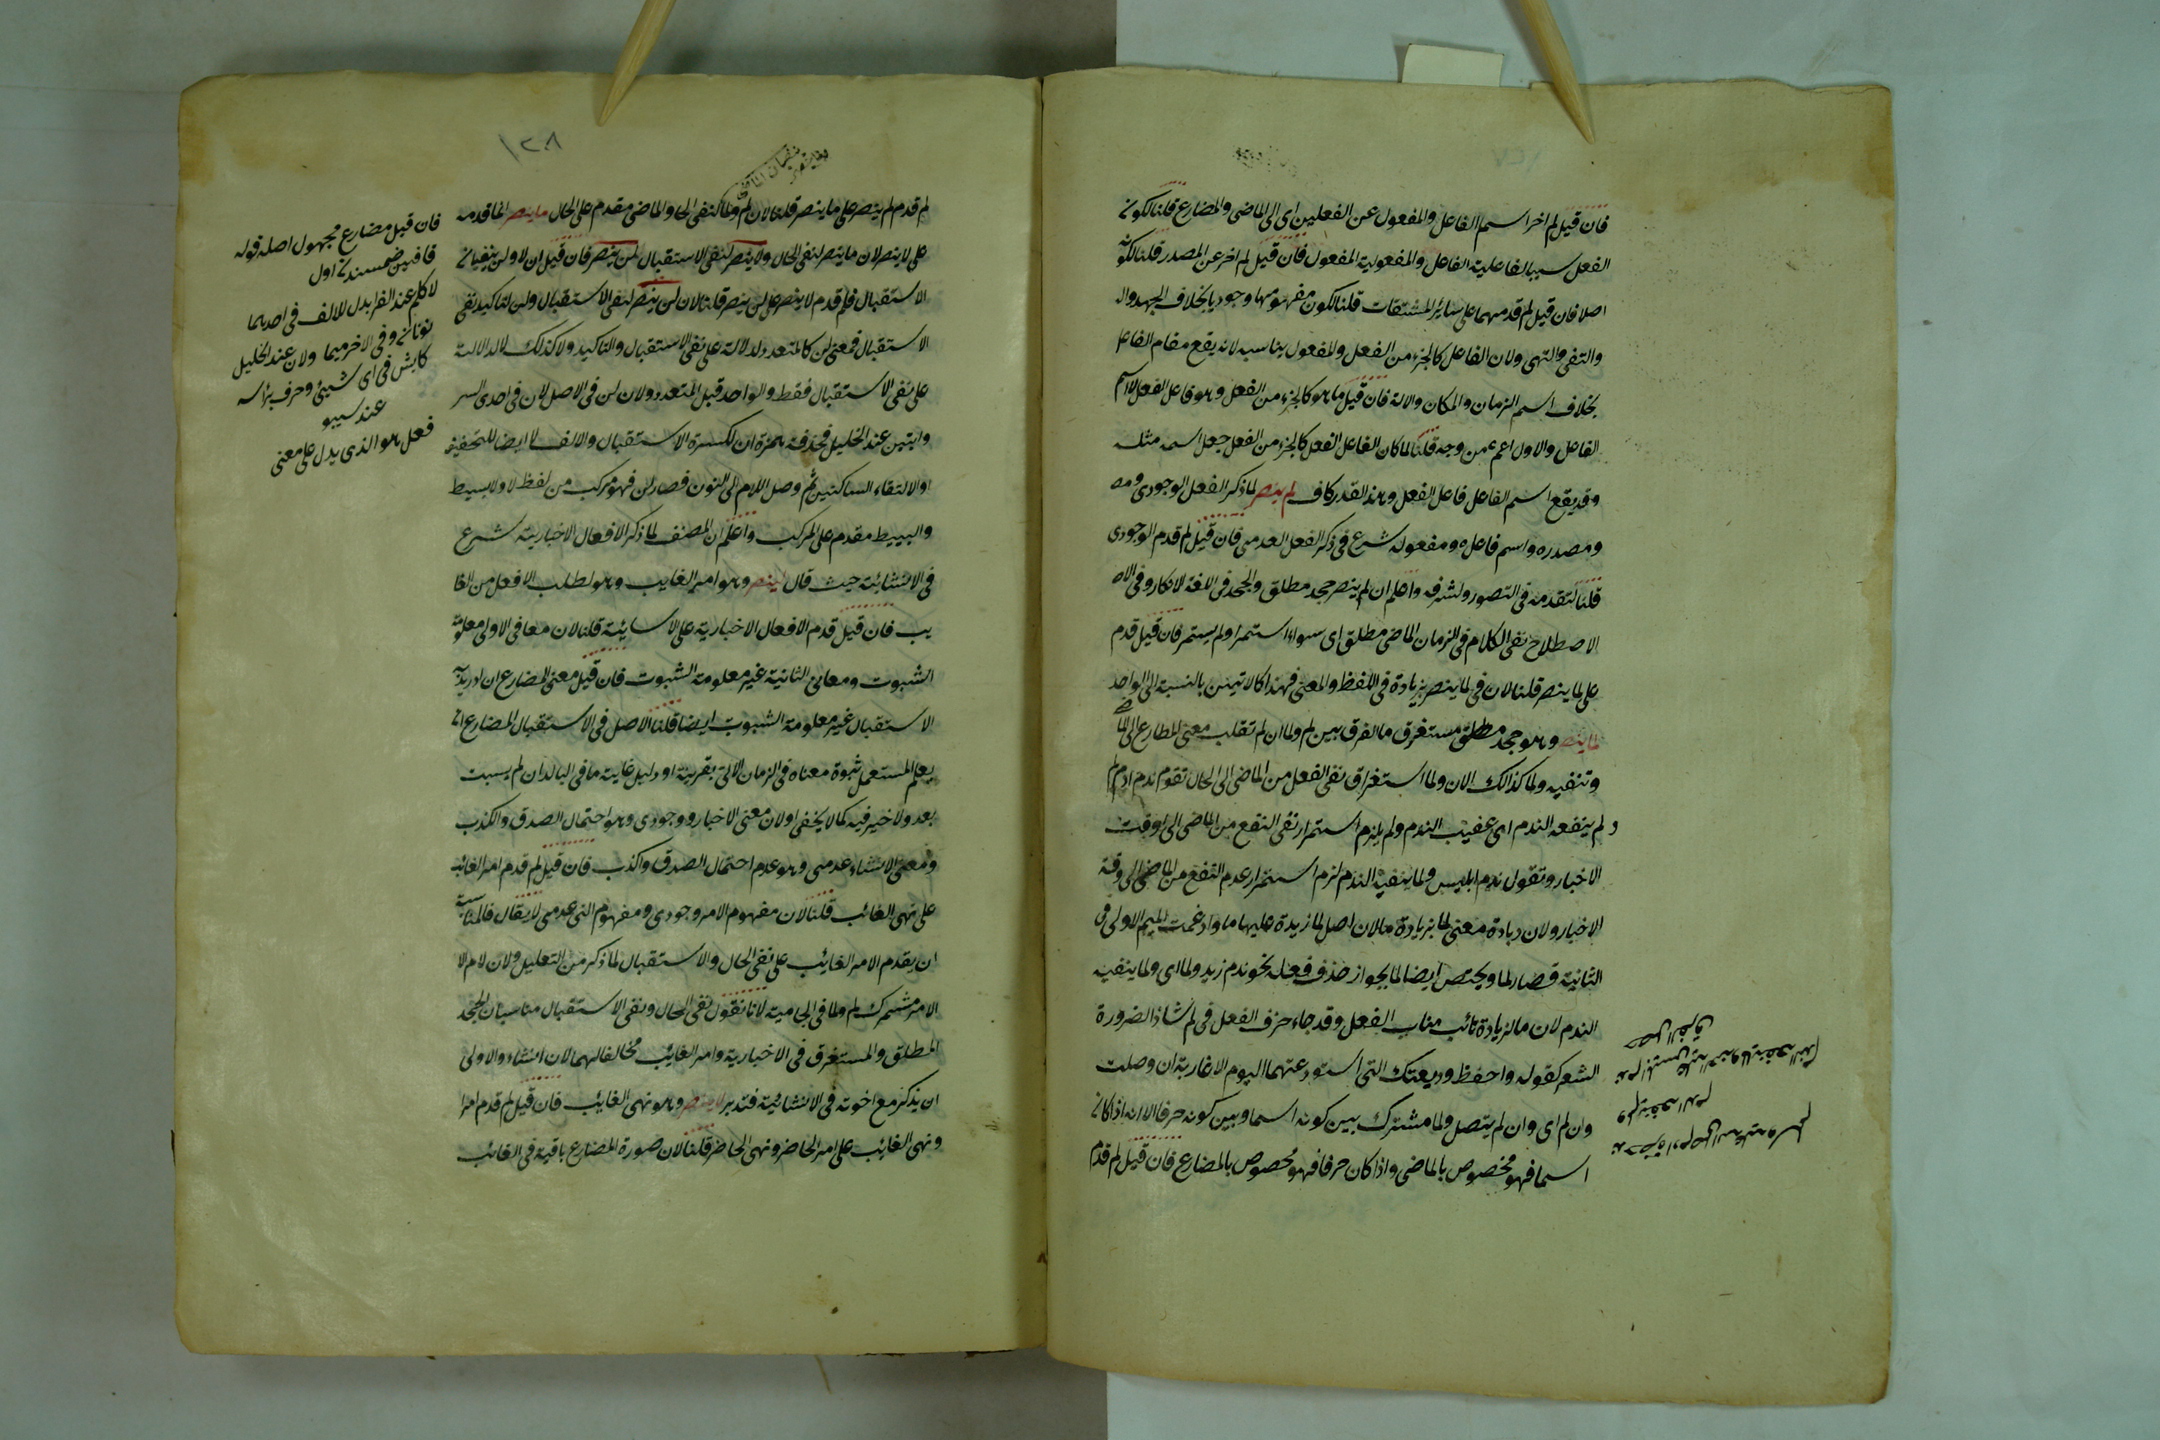 فان قيل لم اخر اسم الفاعل والمفعول عن الفعلين اى الى الماضى والمضارع قلنا لكون
الفعل سببا لفاعلية الفاعل والمفعولية المفعول فان قيل لم اخر عن المصدر قلنا لكونه
اصلا فان قيل لم قدمهما على سائر المشتقات قلنا لكون مفهومهما وجوديا بخلاف الجهد وال
والنفى والنهى ولان الفاعل كالجزء من الفعل والمفعول يناسبه لانه يقع مقام الفاعل
بخلاف اسم الزمان والمكان والالة فان قيل ما هو كالجزء من الفعل وهو فاعل الفعل لا اسم
الفاعل والاول اعم من وجه قلنا لما كان الفاعل الفعل كالجزء من الفعل جعل اسمه مثله
وقد يقع اسم الفاعل فاعل الفعل وهذ القدر كاف لم ينصر لما ذكر الفعل الوجودى ومص
ومصدره واسم فاعله ومفعوله شرع فى ذكر الفعل العدمى فان قيل لم قدم الوجودى
قلنا لتقدمه فى التصور ولشرفه واعلم ان لم ينصر جحد مطلق والجحد فى اللغة الانكار وفى الاص
الاصطلاح نفى الكلام فى الزمان الماضى مطلق اى سواء استمر او لم يستمر فان قيل قدم
على لما ينصر قلنا لان فى لما ينصر زيادة فى اللفظ والمعنى فهذا كالاثنين بالنسبة الى الواحد
لما ينصر وهو جحد مطلق مستغرق ما الفرق بين لم ولما ان لم تقلب معنى المطارع الى الماضى
وتنفيه ولما كذالك الان ولما استغراق نفى الفعل من الماضى الى الحال تقوم ندم ادم لم
ولم ينفعه الندم اى عقيب الندم ولم يلزم استمرار نفى النفع من الماضى الى وقت
الاخبار وتقول ندم ابليس ولما ينفيه الندم لزم استمرار عدم النفع من الماضى الى وقت
الاخبار ولان دبادة معنى لما بزيادة ما لان اصل لما زيدة عليها ما وادغمت الميم الاولى فى
الثانية فصار لما ويختص ايضا لما بجواز حذف فعله نحو ندم زيد ولما اى ولما ينفيه
الندم لان ما الزيادة نائب مناب الفعل وقد جاء حذف الفعل فى لم شاذا لضرورة
الشعر كقوله واحفظ وديعتك التى استودعتهما اليوم الاغاربة ان وصلت
وان لم اى وان لم يتصل ولما مشترك بين كونه اسما وبين كونه حرفا الا انه اذا كان
اسما فهو مخصوص بالماضى واذا كان حرفا فهو مخصوص بالمضارع فان قيل لم قدم
١٢٨
لم قدم لم ينصر على ما ينصر قلنا لان لم ولما لنفى الماضى والماضى مقدم على الحال ما ينصر انما قدمه
على لا ينصر لان ما ينصر لنفى الحال ولا ينصر لنفى الاستقبال لن ينصر فان قيل ان لا ولن ينفيان
الاستقبال فلم قدم لا ينصر على لن ينصر قلنا لان لن ينصر لنفى الاستقبال ولن لتاكيد نفى
الاستقبال فمعنى لن كالمتعدد لدلالة على نفى الاستقبال والتاكيد ولا كذلك لا لدلالته
على نفى الاستقبال فقط والواحد قبل المتعدد ولان لن فى الاصل لان فى احدى الر
وايتين عند الخليل فحذفة همزة ان لكسرة الاستقبال والالف لا ايضا للتخفيف
او الالتقاء الساكنين ثم وصل اللام الى النون فصار لن فهو مركب من لفظ لا ولا بسيط
والبسيط مقدم على المركب واعلم ان المصنف لما ذكر الافعال الاخبارية شرع
فى الانشائية حيث قال لينصر وهو امر الغايب وهو لطلب الافعل من الغا
يب فان قيل قدم الافعال الاخبارية على الانسائية قلنا لان معافى الاولى معلومة
الشبوت ومعانى الثانية غير معلومة الشبوت فان قيل معنى المضارع ان اوريد به
الاستقبال غير معلومة الشبوت ايضا قلنا الاصل فى الاستقبال المضارع ان
يعلم المستعمل ثبوة معناه فى الزمان الاتى بقرينة او دليل غاية ما فى الباب ان لم يسبت
بعد ولا خير فيه كما لا يخفى او لان معنى الاخبار ووجودى وهو احتمال الصدق والكذب
ومعنى الانشاء عدمى وهو عدم احتمال الصدق واكذب فان قيل لم قدم امر الغائب
على نهى الغائب قلنا لان مفهوم الامر وجودى ومفهوم النهى عدمى لا يقال فالمناسبة
ان يقدم الامر الغايب على نفى الحال والاستقبال لما ذكر من التعليل ولان لام الا
الامر مشترك لم ولما فى الجامية لانا نقول نفى الحال ونفى الاستقبال مناسبان الجحد
المطلق والمستغرق فى الاخبارية وامر الغايب مخالفا لهما لان انشاء والاولى
ان يذكر مع اخوته فى الانشائية فتدبر لا ينصر وهو نهى الغايب فان قيل لم قدم امرا
ونهى الغايب على امر الحاضر ونهى الحاضر قلنا لان صورة المضارع باقية فى الغائب
فان قيل مضارع مجهول اصله قوله
لا كلم عند الفرا بدل للالف فى احدهما
نونا وفى الاخر ميما ولان عند الخليل
كايش فى اى شيئ وحرف براسه
عند سيبو
فعل هو الذى يدل على معنى